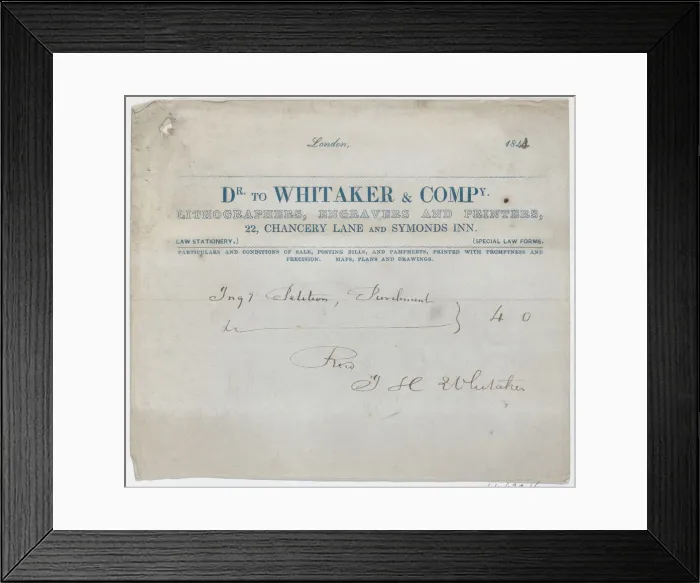 London, 184
DR. TO WHITAKER & COMPY.
LITHOGRAPHERS, ENGRAVERS AND PRINTERS,
22, CHANCERY LANE AND SYMONDS INN.
LAW STATIONERY,) (SPECIAL LAW FORMS,
PARTICULARS AND CONDITIONS OF SALE, POSTING BILLS, AND PAMPHETS, PRINTED WITH PROMPTNESS AND
PRECISION. MAPS, PLANS AND DRAWINGS.
Ing Petition, Parchment
&c } 4 0
T H Whitaker